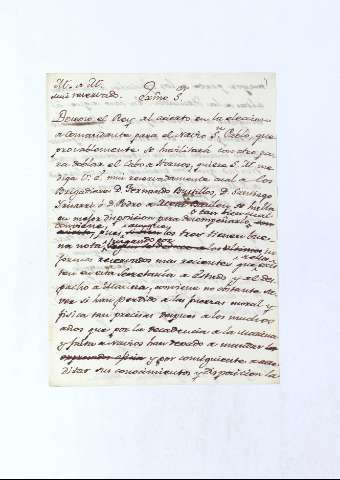 M. a M.
mui reservado.
Exmo S.
Deseoso el Rey al acierto en la eleccion
a comandante para el Navio Sn. Pablo, que
provablemente se havilitará con otro pa
ra doblar el Cabo a Hornos, quiere S. M. me
diga V. E. mui reservadamente cual a los
Brigadieres D. Fernando Bustillos, D. Santiago
Irisarri ó D. Pedro a se halla
en mejor disposicion para desempeñarlo, o tan bien cual
conviene, aunque
que los tres tienen bue
na nota, juzgando por los
formes reservados mas recientes que a ellos exis
ten en esta secretaria a Estado y al des
pacho a Marina, conviene no obstante sa
ver si han perdido a las fuerzas moral y
fisica tan precisas despues a los muchos
años que por la decadencia a la Marina
y falta a Navios han dexado a mandar
y por consiguiente a acre
ditar sus conocimientos y disposicion la